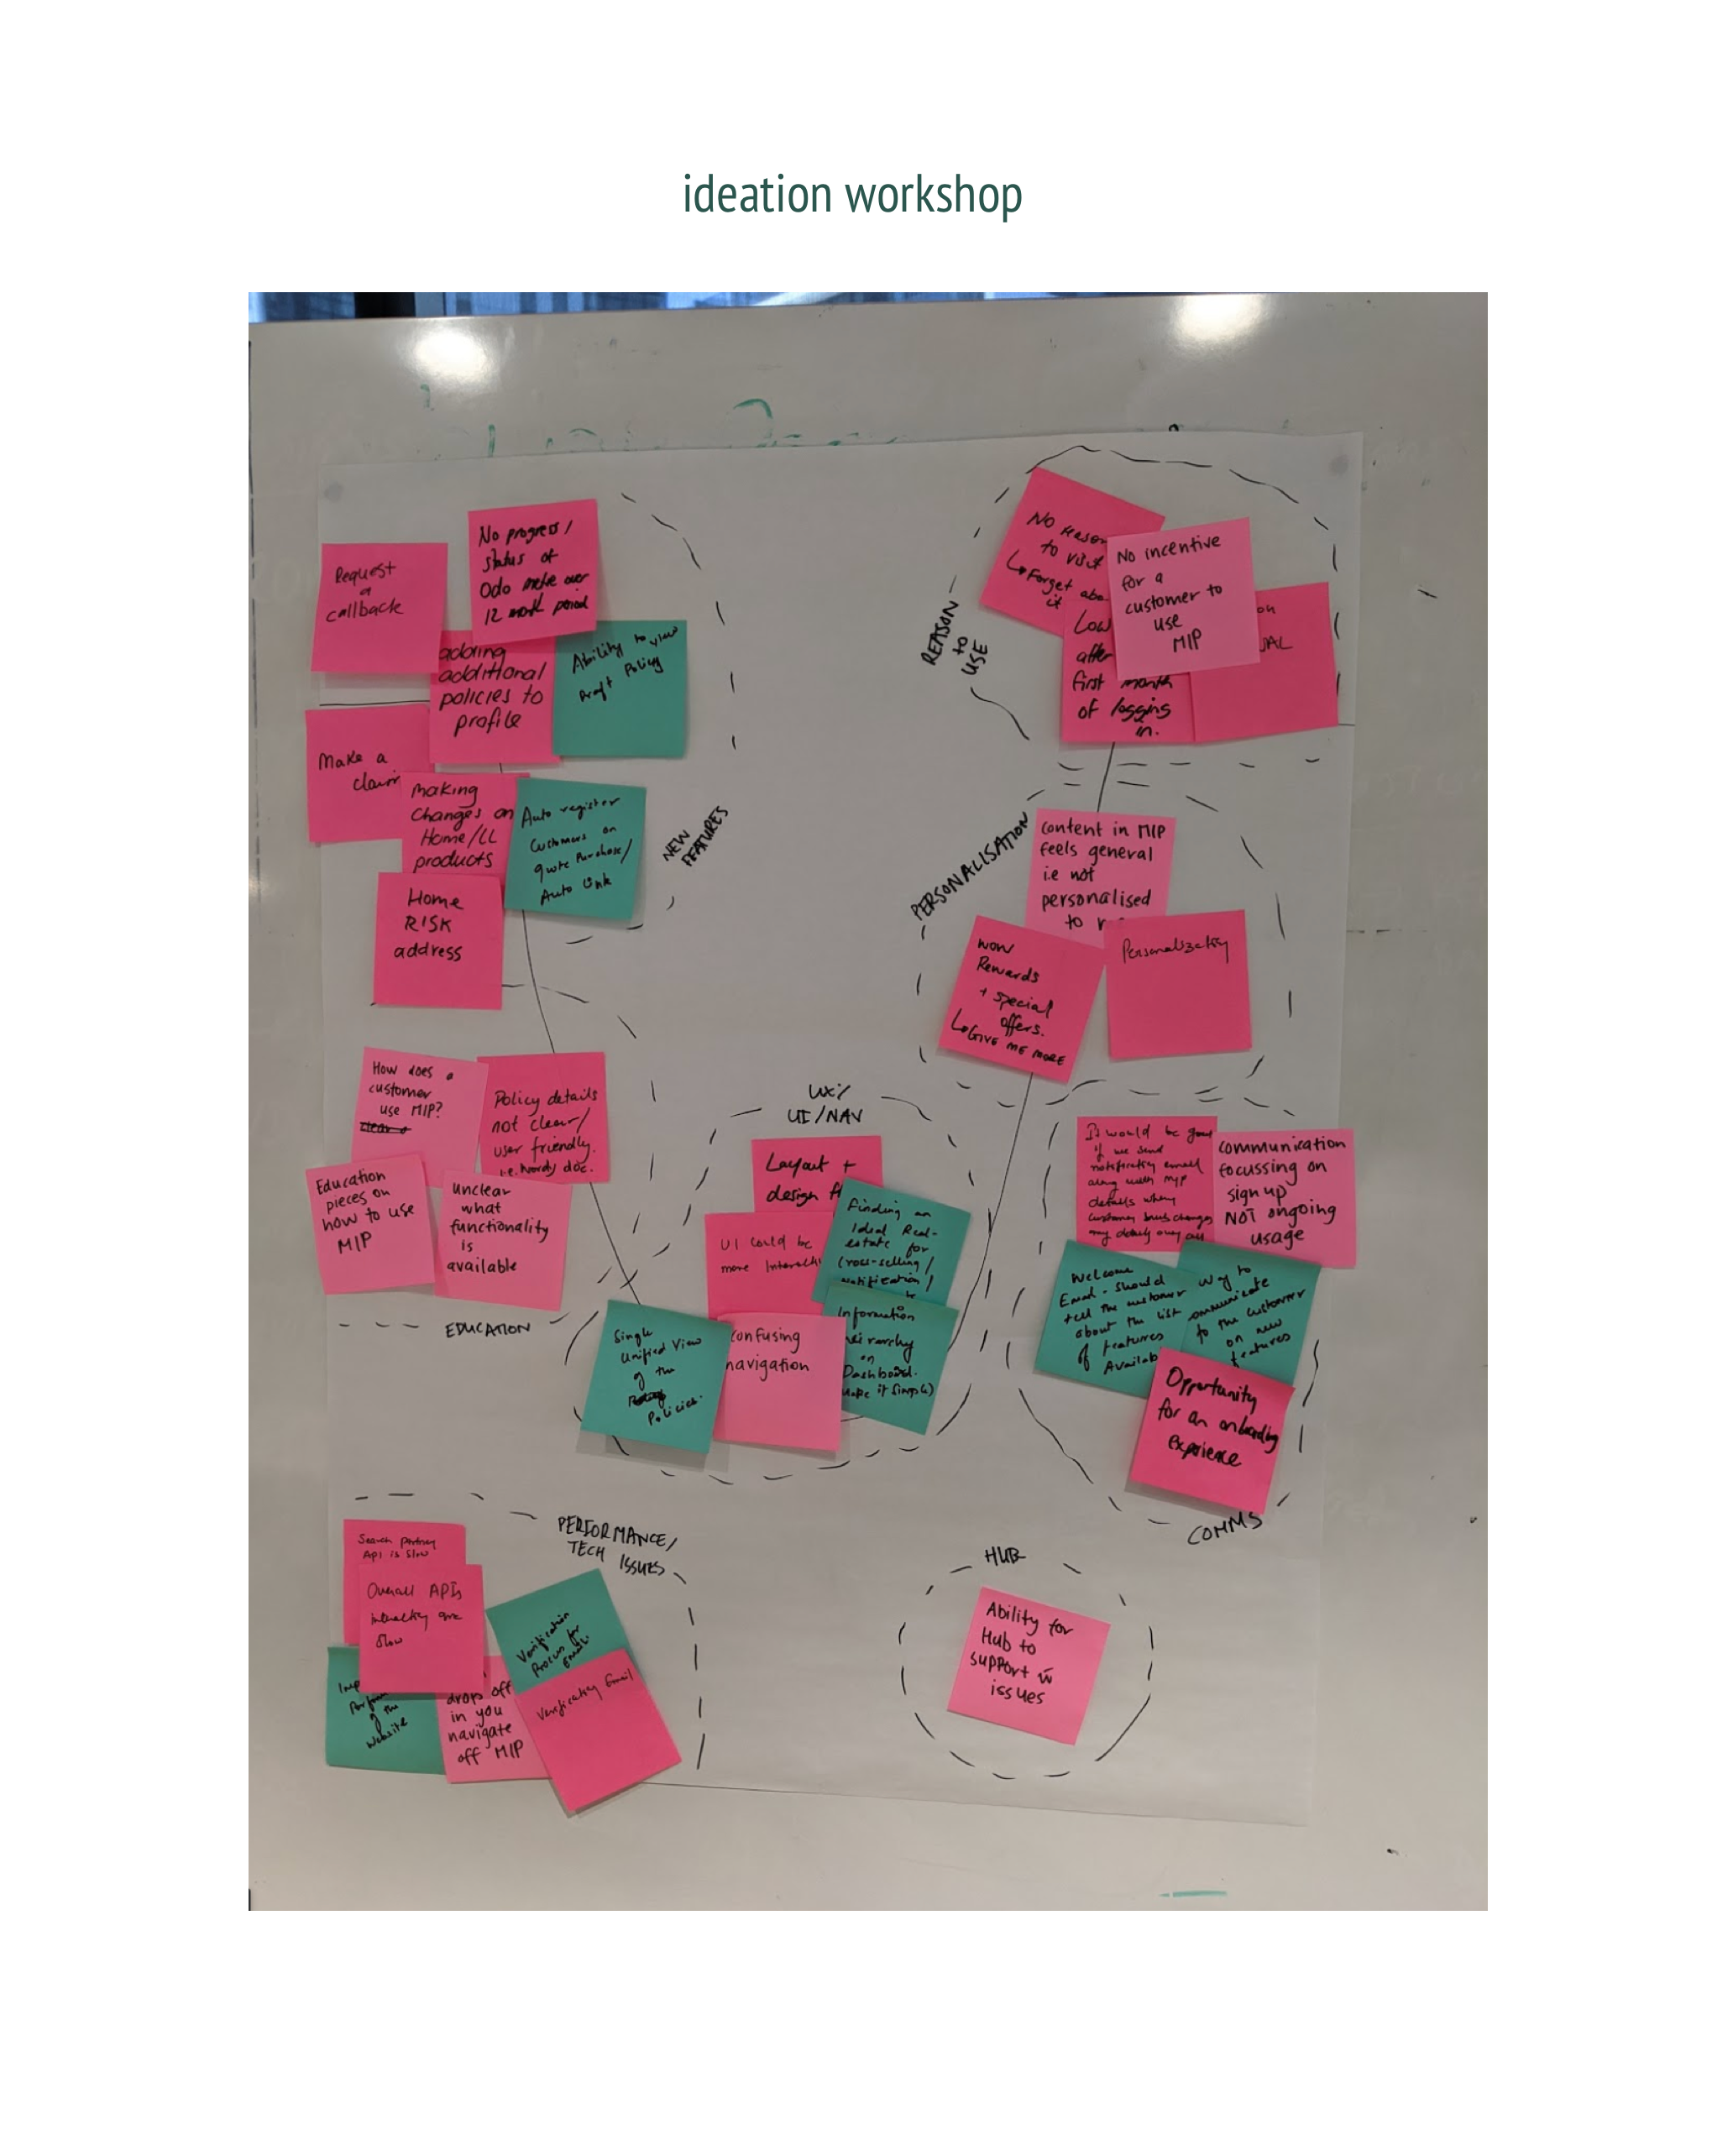 ideation workshop
No progress/
status of
Odo metre over
12 month period
Request
a
callback
adding
additional
policies to
profile
Ability to view
Draft Policy
Make a
claim
Making
Changes on
Home/LL
products
Auto register
Customers on
quote Purchase/
Auto Link
Home
RISK
address
NEW
FEATURES
No reason
to visit
↳ Forget
it
No incentive
for a
customer to
use
MIP
Low
after
first month
of logging
in.
REASON
to
USE
PERSONALISATION
content in MIP
feels general
i.e not
personalised
to
WOW
Rewards
+ special
offers.
↳ GIVE ME MORE
Personalization
How does a
customer
use MIP?
Policy details
not clear/
user friendly.
i.e. wordy doc.
Education
pieces on
how to use
MIP
unclear
what
functionality
is
available
EDUCATION
UX/
UI/NAV
Layout +
design
UI could be
more
Finding an
Ideal Real-
estate for
Cross-selling/
notification/
Single
Unified View
of the
Policies.
confusing
navigation
Information
Hierarchy
on
Dashboard.
Make it Simple)
It would be good
if we send
notification email
along with MIP
details when
customer
communication
focussing on
sign up
NOT ongoing
usage
Welcome
Email - should
tell the customer
about the list
of features
Way to
communicate
to the customer
on new
features
Opportunity
for an onboarding
experience
COMMS
PERFORMANCE/
TECH ISSUES
Search
API is slow
Overall APIs
are
slow
of the
Website
drops off
in you
navigate
off MIP
Verification
Process for
Email
Verification Email
HUB
Ability for
Hub to
support w
issues